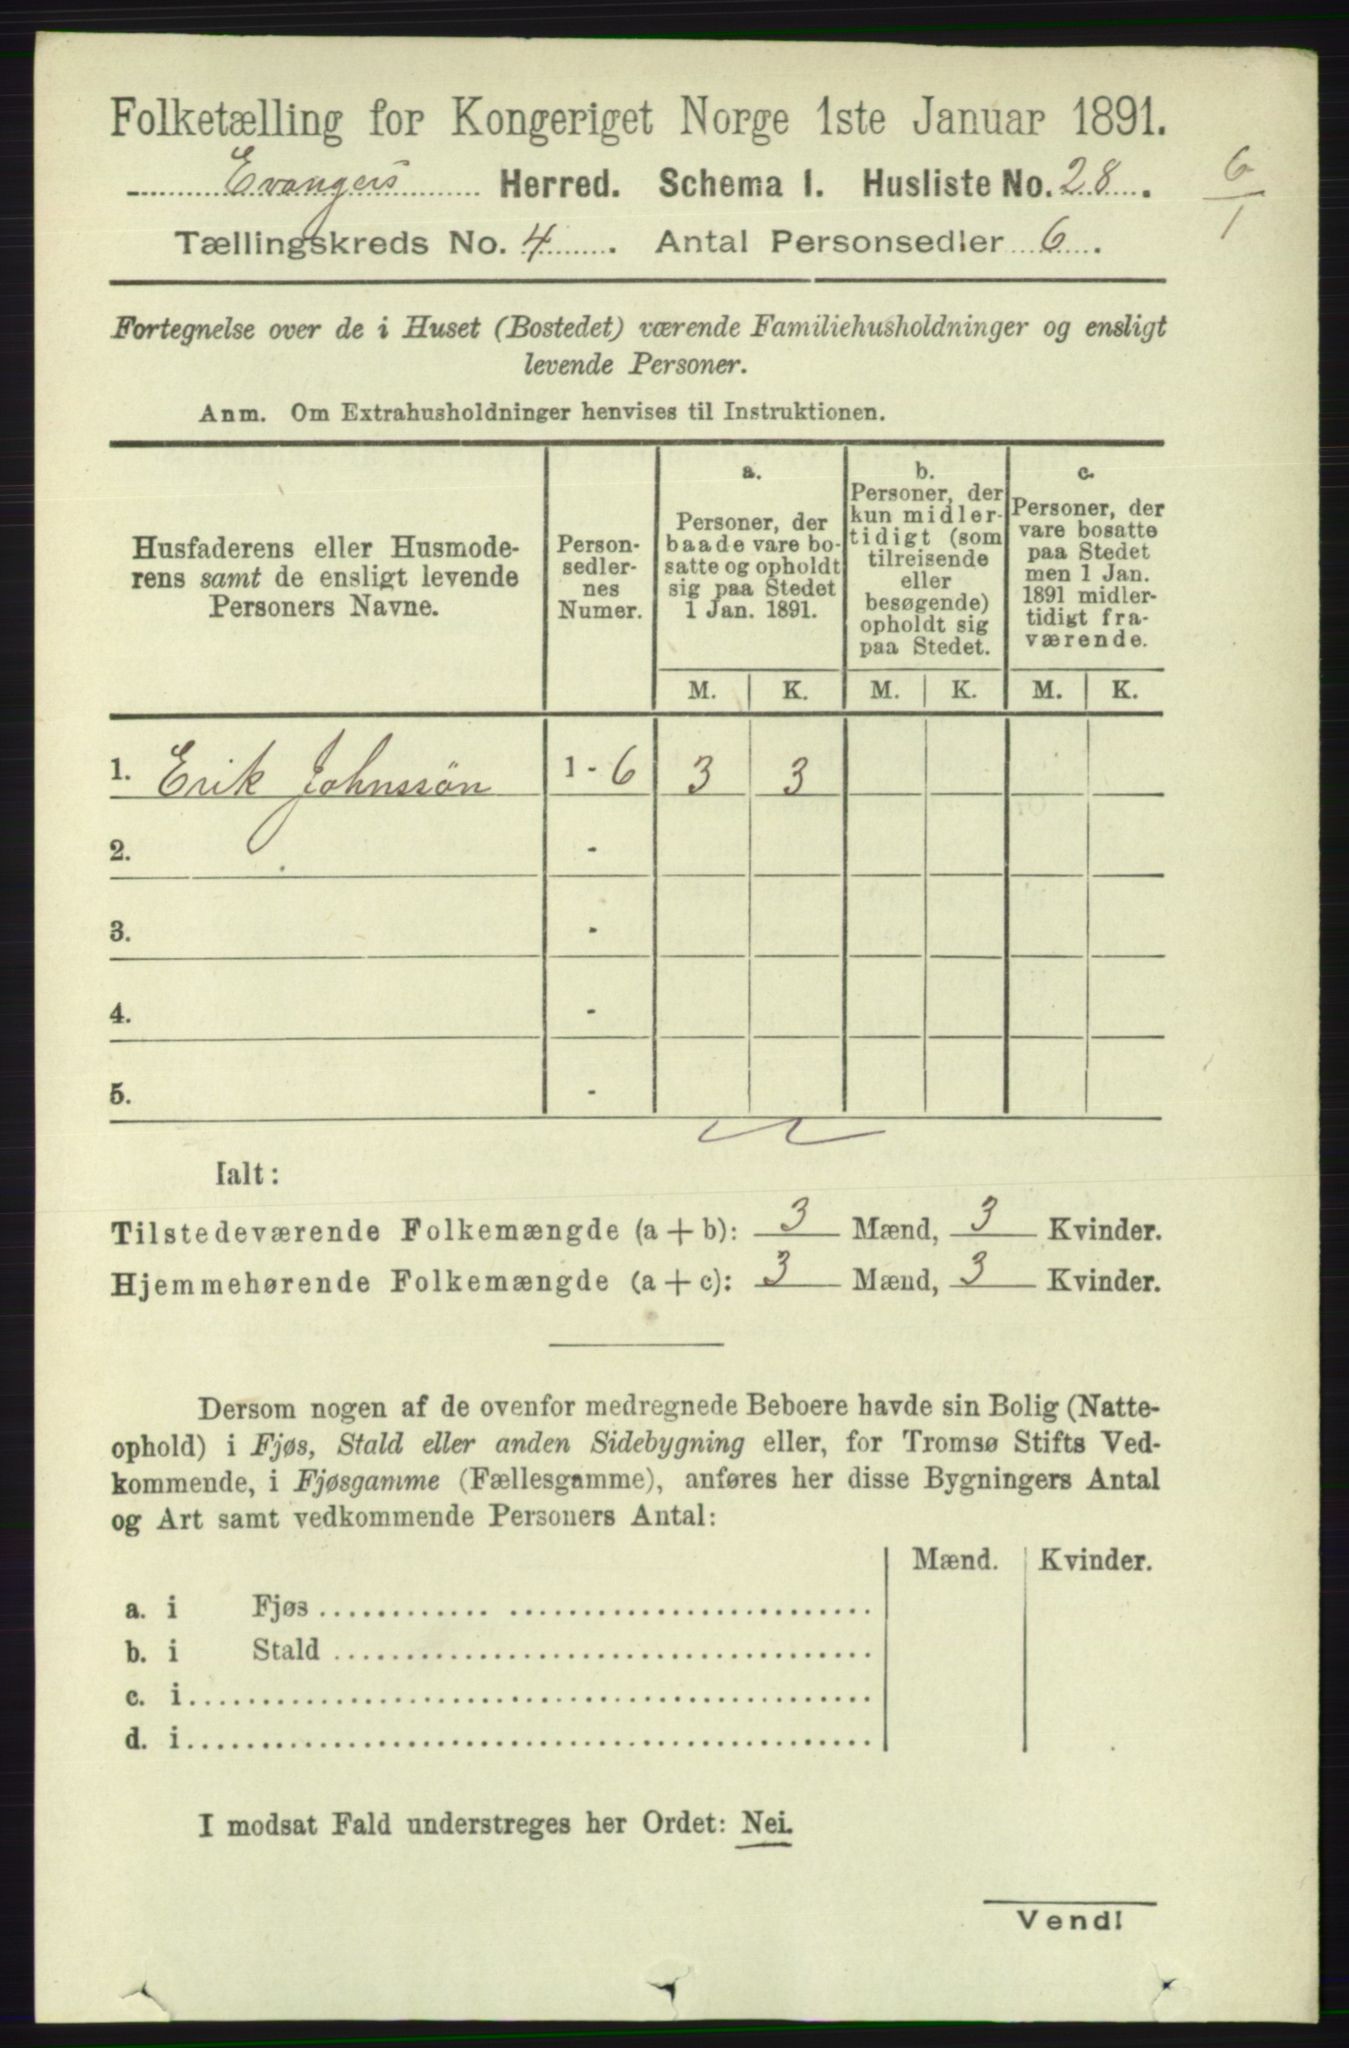 Folketælling for Kongeriget Norge 1ste Januar 1891.
Evangers Herred. Schema 1. Husliste No. 28.
6
1
Tællingskreds No. 4. Antal Personsedler 6.
Fortegnelse over de i Huset (Bostedet) værende Familiehusholdninger og ensligt
levende Personer.
Anm. Om Extrahusholdninger henvises til Instruktionen.
Husfaderens eller Husmode-
rens samt de ensligt levende
Personers Navne.
Person-
sedler-
nes
Numer.
a.
Personer, der
baade vare bo-
satte og opholdt
sig paa Stedet
1 Jan. 1891.
b.
Personer, der
kun midler-
tidigt (som
tilreisende
eller
besøgende)
opholdt sig
paa Stedet.
c.
Personer, der
vare bosatte
paa Stedet
men 1 Jan.
1891 midler-
tidigt fra-
værende.
M. K. M. K. M. K.
1. Erik Johnssön 1 - 6 3 3
2. -
3. -
4. -
5. -
Ialt:
Tilstedeværende Folkemængde (a + b): 3 Mænd, 3 Kvinder.
Hjemmehørende Folkemængde (a + c): 3 Mænd, 3 Kvinder.
Dersom nogen af de ovenfor medregnede Beboere havde sin Bolig (Natte-
ophold) i Fjøs, Stald eller anden Sidebygning eller, for Tromsø Stifts Ved-
kommende, i Fjøsgamme (Fællesgamme), anføres her disse Bygningers Antal
og Art samt vedkommende Personers Antal:
Mænd. Kvinder.
a. i Fjøs
b. i Stald
c. i
d. i
I modsat Fald understreges her Ordet: Nei.
Vend!